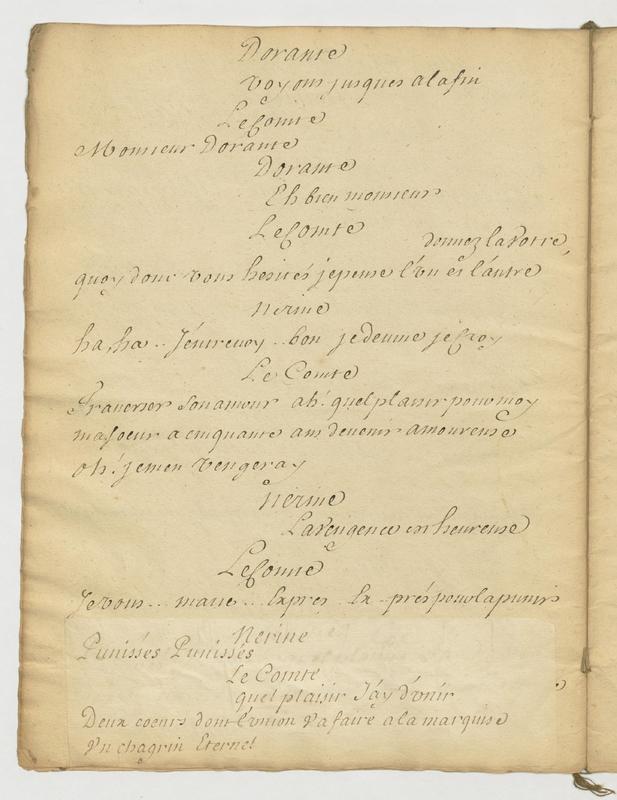 Dorante
voyons jusques alafin
LeComte
Monsieur Dorante
Dorante
Eh bien monsieur
LeComte
donnez la Votre,
quoy donc vous hesités jepense l'vn et l'autre
Nerine
ha, ha .. J'entrevoy .. bon jedevine jeCroy
Le Comte
Traverser son amour ah! quel plaisir pour moy
masoeur a cinquante ans devenir amoureuse
oh! jemen vengeray
Nerine
LaVengence est heureuse
LeComte
Jevous .. marie .. Expres .. Ex .. prés pour la punir
Nerine
Punissés Punissés
Le Comte
quel plaisir J'ay d'vnir
Deux coeurs dont l'vnion va faire a la marquise
Vn chagrin Eternel